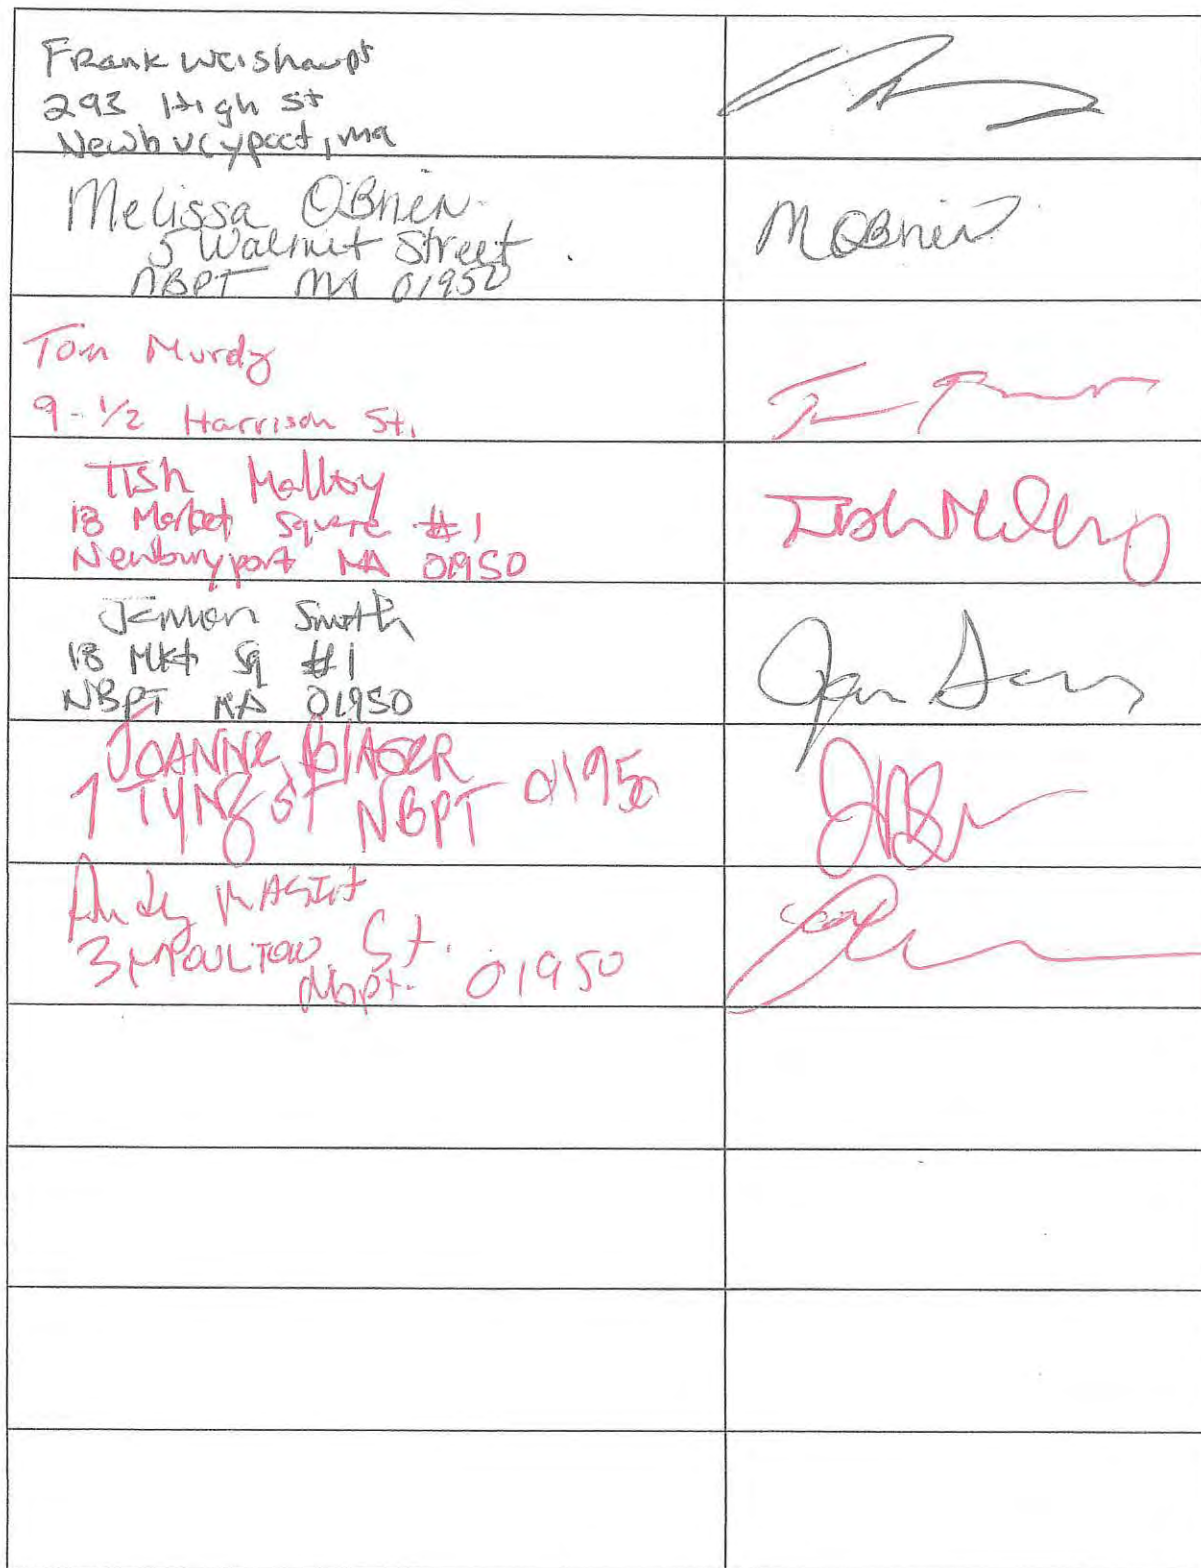 Frank Weishaupt
293 High St
Newburyport, ma
Melissa OBrien
5 Walnut Street
NBPT MA 01950
M OBrien
Tom Murdy
9-1/2 Harrison St.
Tish Malloy
18 Market Square #1
Newburyport MA 01950
Tish Malloy
Smith
18 Mkt Sq #1
NBPT MA 01950
JOANNE
1 TYNG ST NBPT 01950
Andy
3 MOULTON St.
Nbpt. 01950